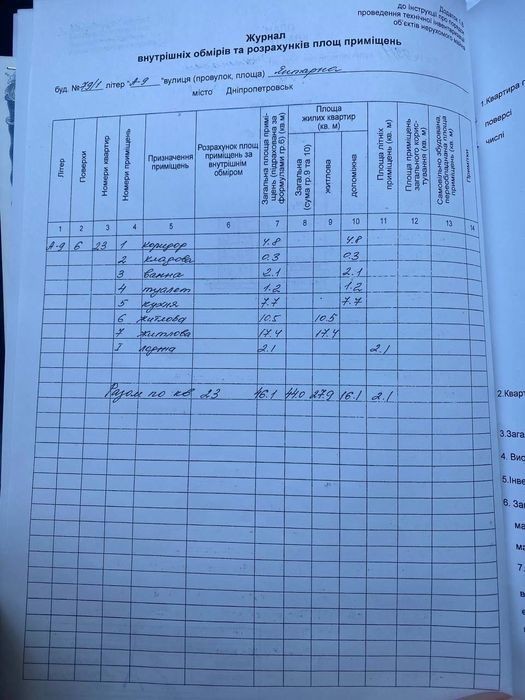 Додаток 15
до Інструкції про порядок
проведення технічної інвентаризації
об'єктів нерухомого майна
Журнал
внутрішніх обмірів та розрахунків площ приміщень
буд. № 79/1 літер "А-9 "вулиця (провулок, площа) Янтарна
місто Дніпропетровськ
Літер
Поверхи
Номери квартир
Номери приміщень
Призначення приміщень
Розрахунок площ приміщень за внутрішнім обміром
Загальна площа приміщень (підрахована за формулами гр.6) (кв.м)
Площа жилих квартир (кв. м)
Загальна (сума гр.9 та 10)
житлова
допоміжна
Площа літніх приміщень (кв. м)
Площа приміщень загального користування (кв. м)
Самовільно збудована, переобладнана площа приміщень (кв. м)
Примітки
1 2 3 4 5 6 7 8 9 10 11 12 13 14
А-9 6 23 1 коридор 4.8 4.8
2 кладова 0.3 0.3
3 ванна 2.1 2.1
4 туалет 1.2 1.2
5 кухня 7.7 7.7
6 житлова 10.5 10.5
7 житлова 17.4 17.4
I лоджа 2.1 2.1
Разом по кв 23 46.1 44.0 27.9 16.1 2.1
1.Квартира
поверсі
числі
2.Кварт
3.Зага
4. Вис
5.Інве
6. За
ма
ма
7.